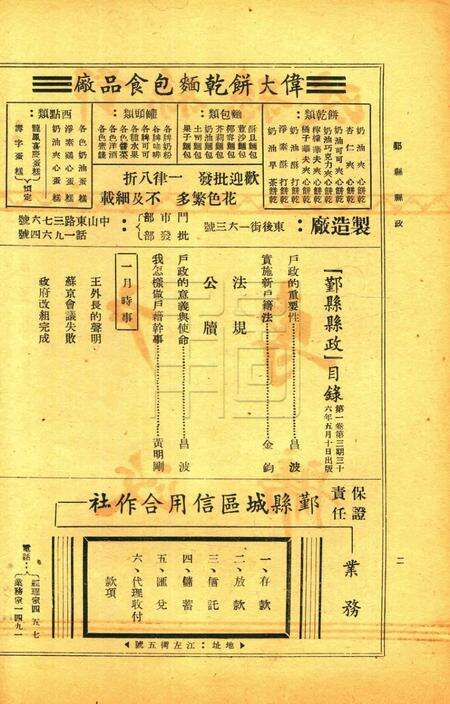 鄞縣縣政
二
偉大餅乾麵包食品廠
餅乾類：
奶油夾心餅乾
杏仁夾心餅乾
奶油可可夾心餅乾
奶油巧克力夾心餅乾
檸檬華夫夾心餅乾
橘子華夫夾心餅乾
淨素酥打餅乾
奶油酥打餅乾
奶油早茶餅乾
麵包類：
甜豆麵包
豆沙麵包
椰蓉麵包
芥莉麵包
奶油麵包
土司麵包
果子麵包
罐頭類：
各牌奶粉
各牌咖啡
各牌可可
各種水果
各色醬菜
各色素雞
西點類：
各色奶油蛋糕
淨素夾心蛋糕
奶油夾心蛋糕
龍鳳喜慶蛋糕
壽字蛋糕
預定
歡迎批發一律八折
花色繁多不及細載
製造廠：東後街一六三號
門市部：中山東路三七六號
批發部：電話一九六四號
「鄞縣縣政」目錄
第一卷第三期三十六年五月十日出版
戶政的重要性……呂波
實施新戶籍法……金鈞
法規
公牘
戶政的意義與使命……呂波
我怎樣做戶籍幹事……黃明剛
一月時事
王外長的聲明
蘇京會議失敗
政府改組完成
保證責任
鄞縣城區信用合作社
業務
一、存款
二、放款
三、信託
四、儲蓄
五、匯兌
六、代理收付款項
地址：江左街五號
電話：
經理室四五七
業務室一四九一